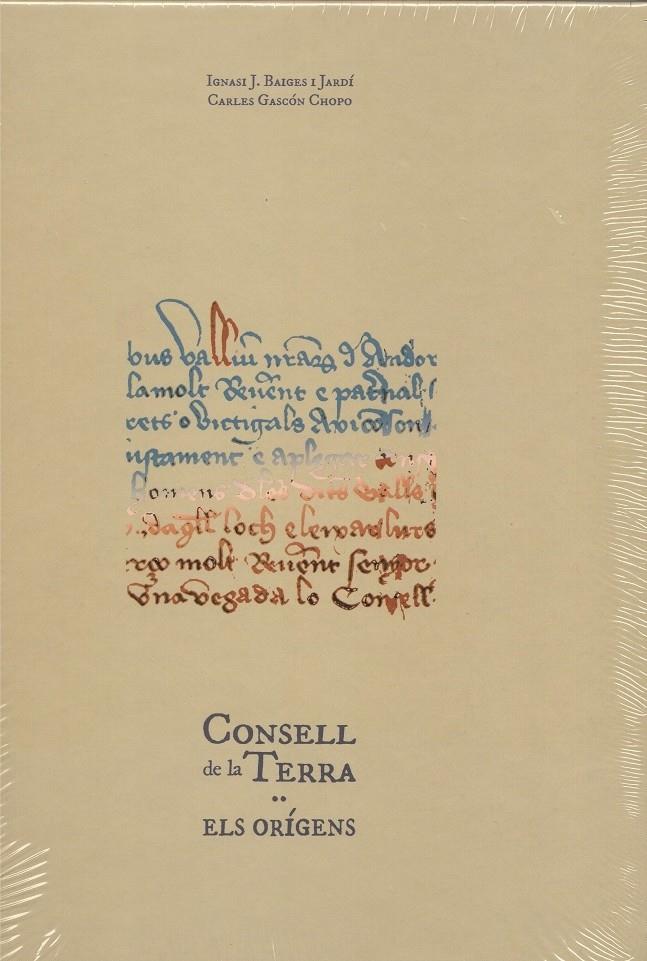 Ignasi J. Baiges i Jardí
Carles Gascón Chopo
bus valliū nr̄arȝ d Andor
lamolt Reuēent e pat̄nal
rets o victigals
iustament e aplegar
homens d̄les dits valls
loch e leuoar lurs
molt Reuēent senyor
Una vegada lo Consell
Consell
de la Terra
••
els orígens